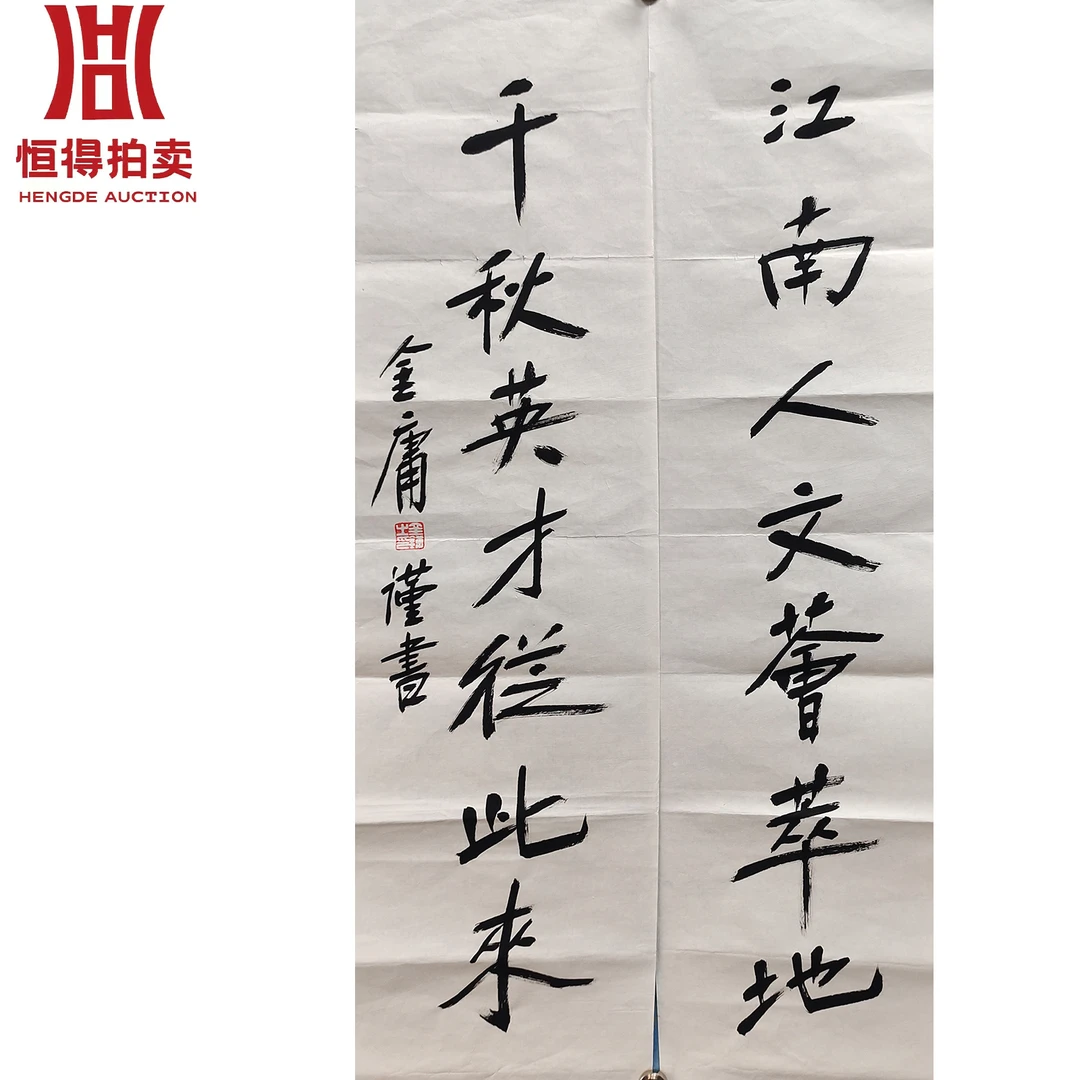 恒得拍卖
HENGDE AUCTION
江南人文薈萃地
千秋英才從此來
金庸
謹書